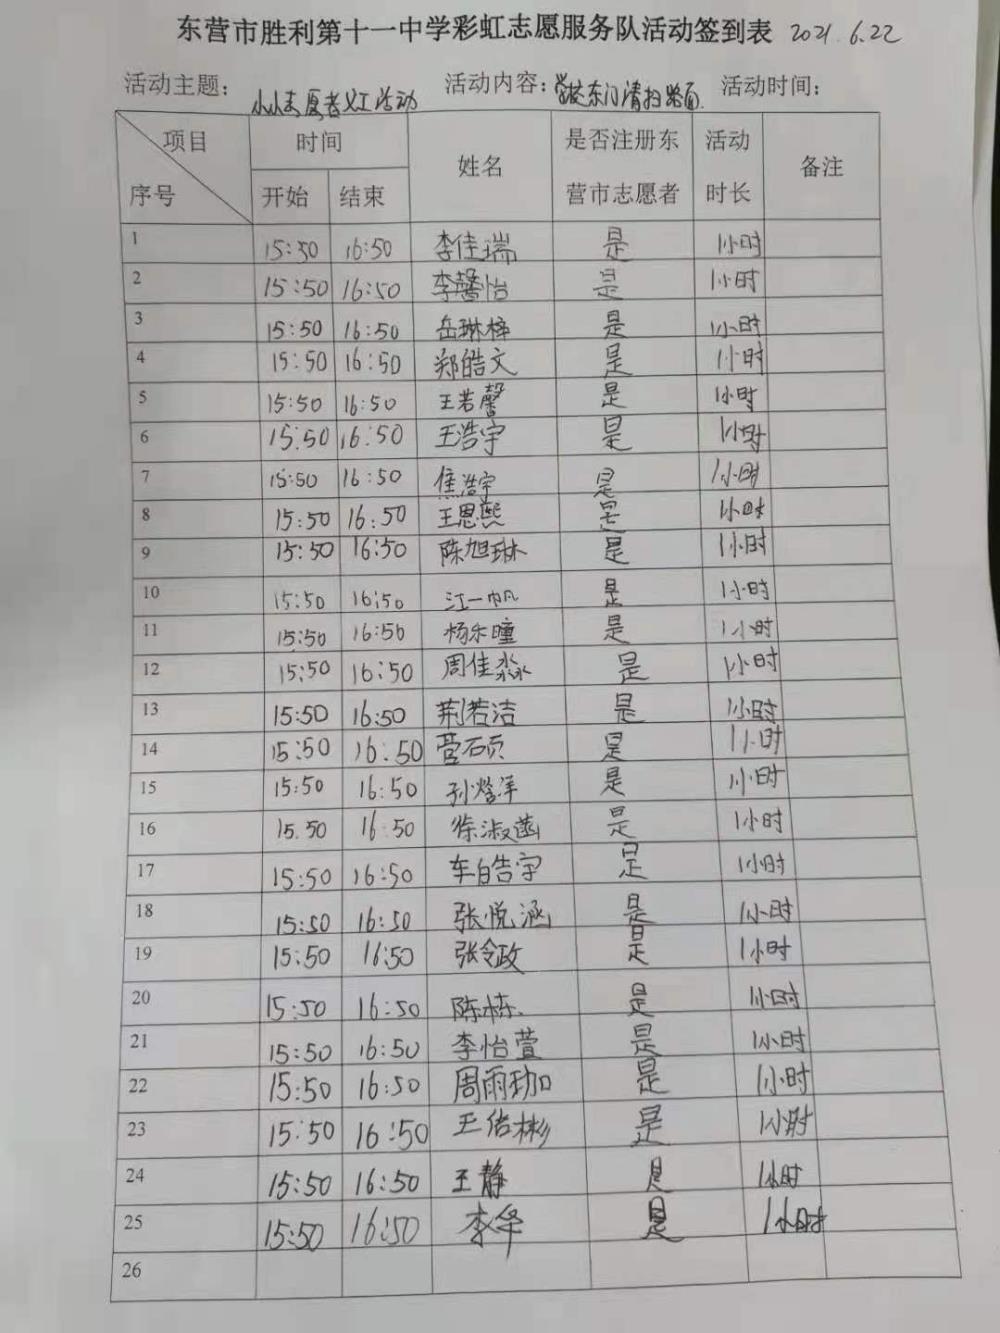 东营市胜利第十一中学彩虹志愿服务队活动签到表 2021.6.22
活动主题： 小小志愿者义工活动 活动内容：学校东门清扫路面. 活动时间：
项目 时间 姓名 是否注册东营市志愿者 活动时长 备注
序号 开始 结束
1 15:50 16:50 李佳瑞 是 1小时
2 15:50 16:50 李馨怡 是 1小时
3 15:50 16:50 岳琳梓 是 1小时
4 15:50 16:50 郑皓文 是 1小时
5 15:50 16:50 王若馨 是 1小时
6 15:50 16:50 王浩宇 是 1小时
7 15:50 16:50 焦浩宇 是 1小时
8 15:50 16:50 王恩熙 是 1小时
9 15:50 16:50 陈旭琳 是 1小时
10 15:50 16:50 江一帆 是 1小时
11 15:50 16:50 杨乐瞳 是 1小时
12 15:50 16:50 周佳淼 是 1小时
13 15:50 16:50 荆若洁 是 1小时
14 15:50 16:50 是 1小时
15 15:50 16:50 是 1小时
16 15.50 16:50 徐淑菡 是 1小时
17 15:50 16:50 车皓宇 是 1小时
18 15:50 16:50 张悦涵 是 1小时
19 15:50 16:50 张令政 是 1小时
20 15:50 16:50 陈栋 是 1小时
21 15:50 16:50 李怡萱 是 1小时
22 15:50 16:50 周雨珈 是 1小时
23 15:50 16:50 是 1小时
24 15:50 16:50 王静 是 1小时
25 15:50 16:50 李华 是 1小时
26